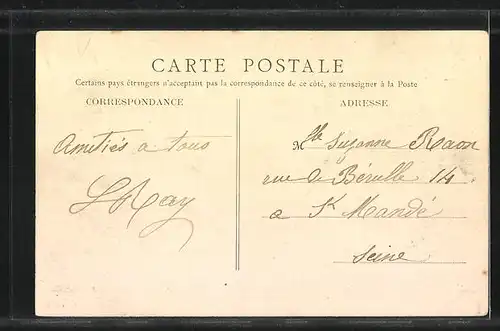 CARTE POSTALE
Certains pays étrangers n'acceptant pas la correspondance de ce côté, se renseigner à la Poste
CORRESPONDANCE
ADRESSE
Amitiés a tous
Mlle Suzanne Raon
rue de Bérulle 14
a St Mandé
Seine